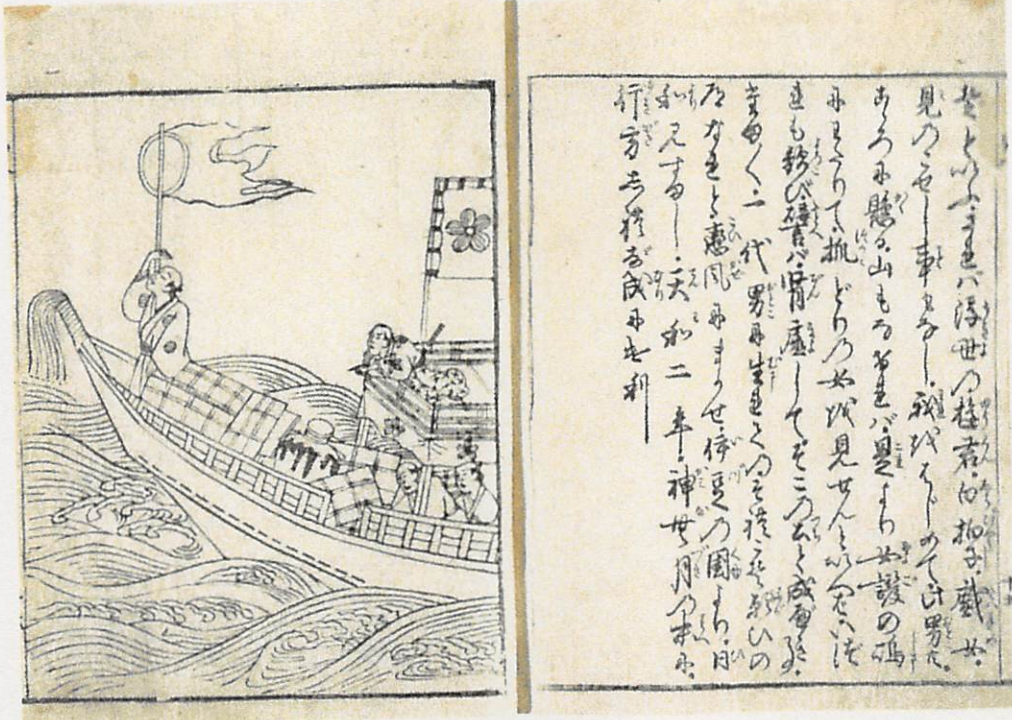 ぞといふされバ浮世の遊君白拍子戯女
見のこせし事もなし我をはじめて此男共
こゝろに懸る山もなければ是より女護の嶋
にわたりて抓どりの女を見せんといへばいづ
れも歓び譬バ腎虚してそこの土と成べき
事たま〱一代男に生れてのそれこそ願ひの
道なれと恋風にまかせ伊豆の国より日
和見すまし天和二年神無月の末に
行方しれず成にけり